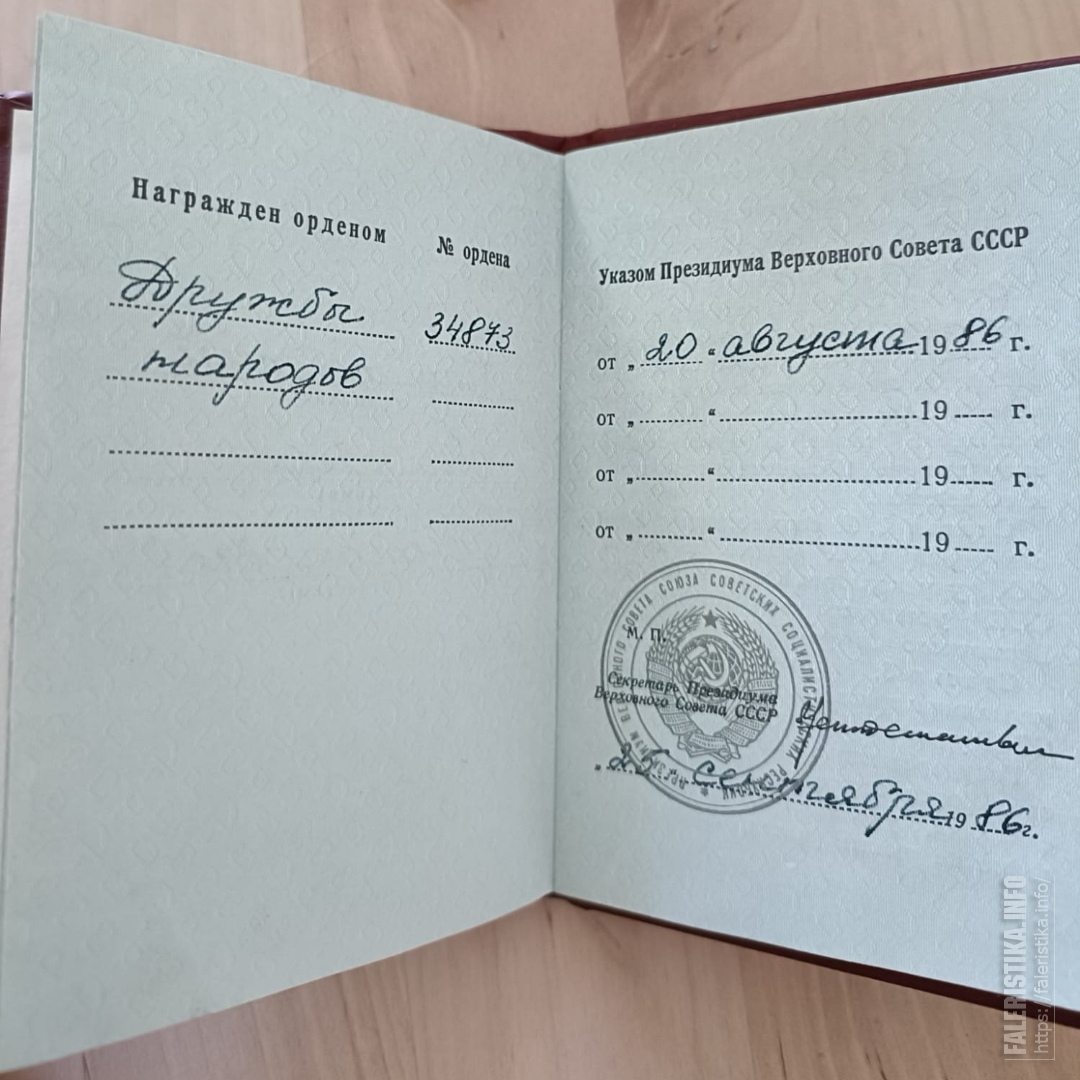 Награжден орденом
№ ордена
Дружбы 34873
народов
Указом Президиума Верховного Совета СССР
от „ 20 “ августа 1986 г.
от „ “ 19 г.
от „ “ 19 г.
от „ “ 19 г.
М. П.
Секретарь Президиума
Верховного Совета СССР
„ 25 сентября 1986г.
ПРЕЗИДИУМ ВЕРХОВНОГО СОВЕТА СОЮЗА СОВЕТСКИХ СОЦИАЛИСТИЧЕСКИХ РЕСПУБЛИК
FALERISTIKA.INFO
https://faleristika.info/